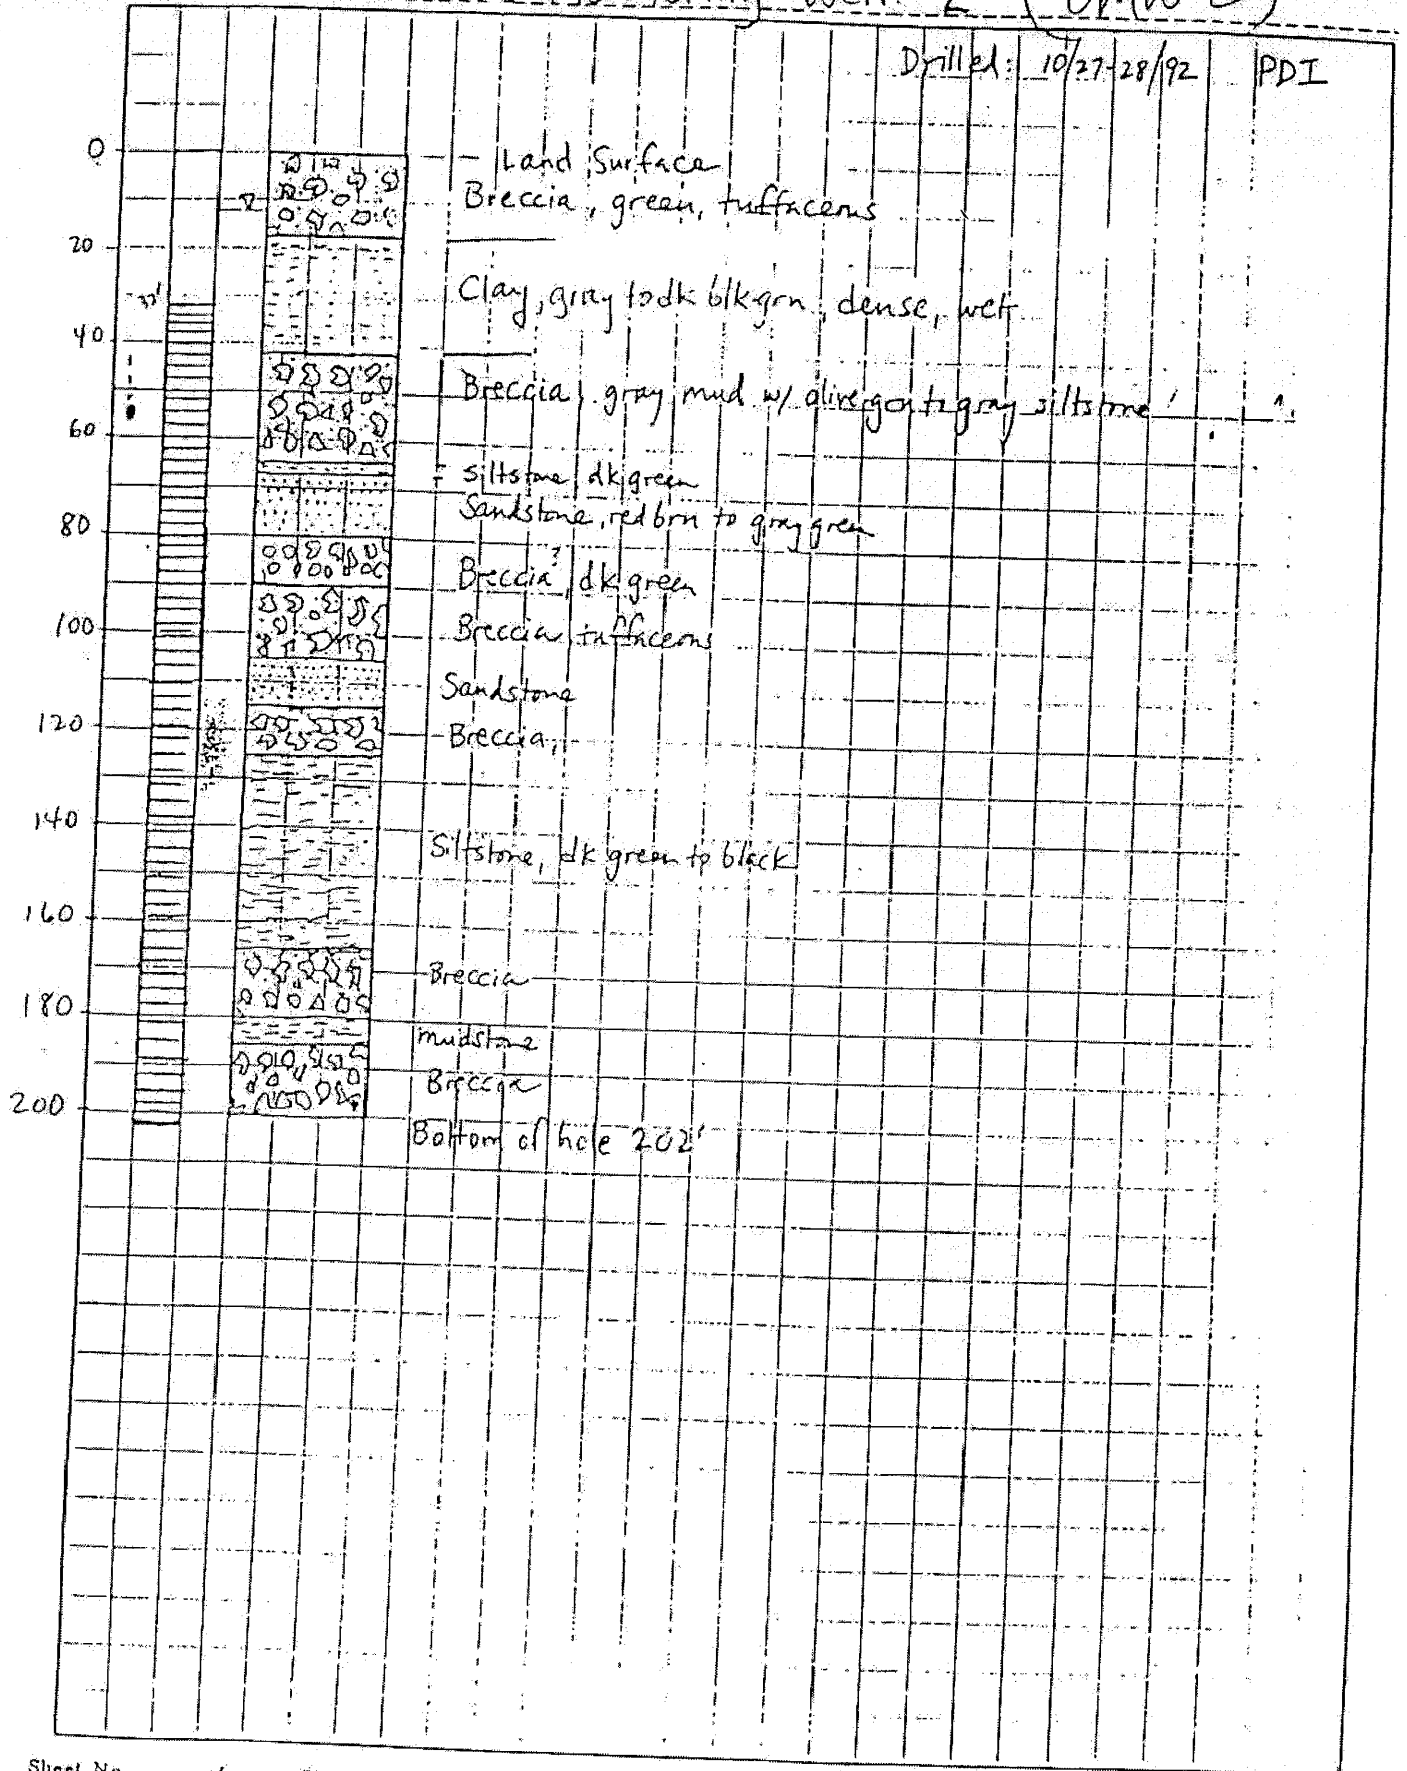 Well 2
Drilled: 10/27-28/92 PDI
0
- Land Surface
Breccia, green, tuffaceous
20
Clay, gray to dk blk grn, dense, wet
32'
40
Breccia, gray mud w/ olive grn to gray siltstone
60
siltstone, dk green
Sandstone, red brn to gray green
80
Breccia?, dk green
100
Breccia, tuffaceous
Sandstone
120
Breccia,
140
Siltstone, dk green to black
160
Breccia
180
mudstone
Breccia
200
Bottom of hole 202'
Sheet No.